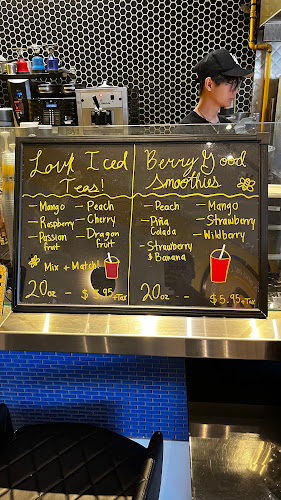 Louk Iced
Teas!
- Mango
- Raspberry
- Passion
fruit
- Peach
- Cherry
- Dragon
fruit
Mix + Match!
20oz -- $ .95 +Tax
Berry Good
Smoothies
- Peach
- Piña
Colada
- Strawberry
& Banana
- Mango
- Strawberry
- Wildberry
20oz -- $5.95 +Tax